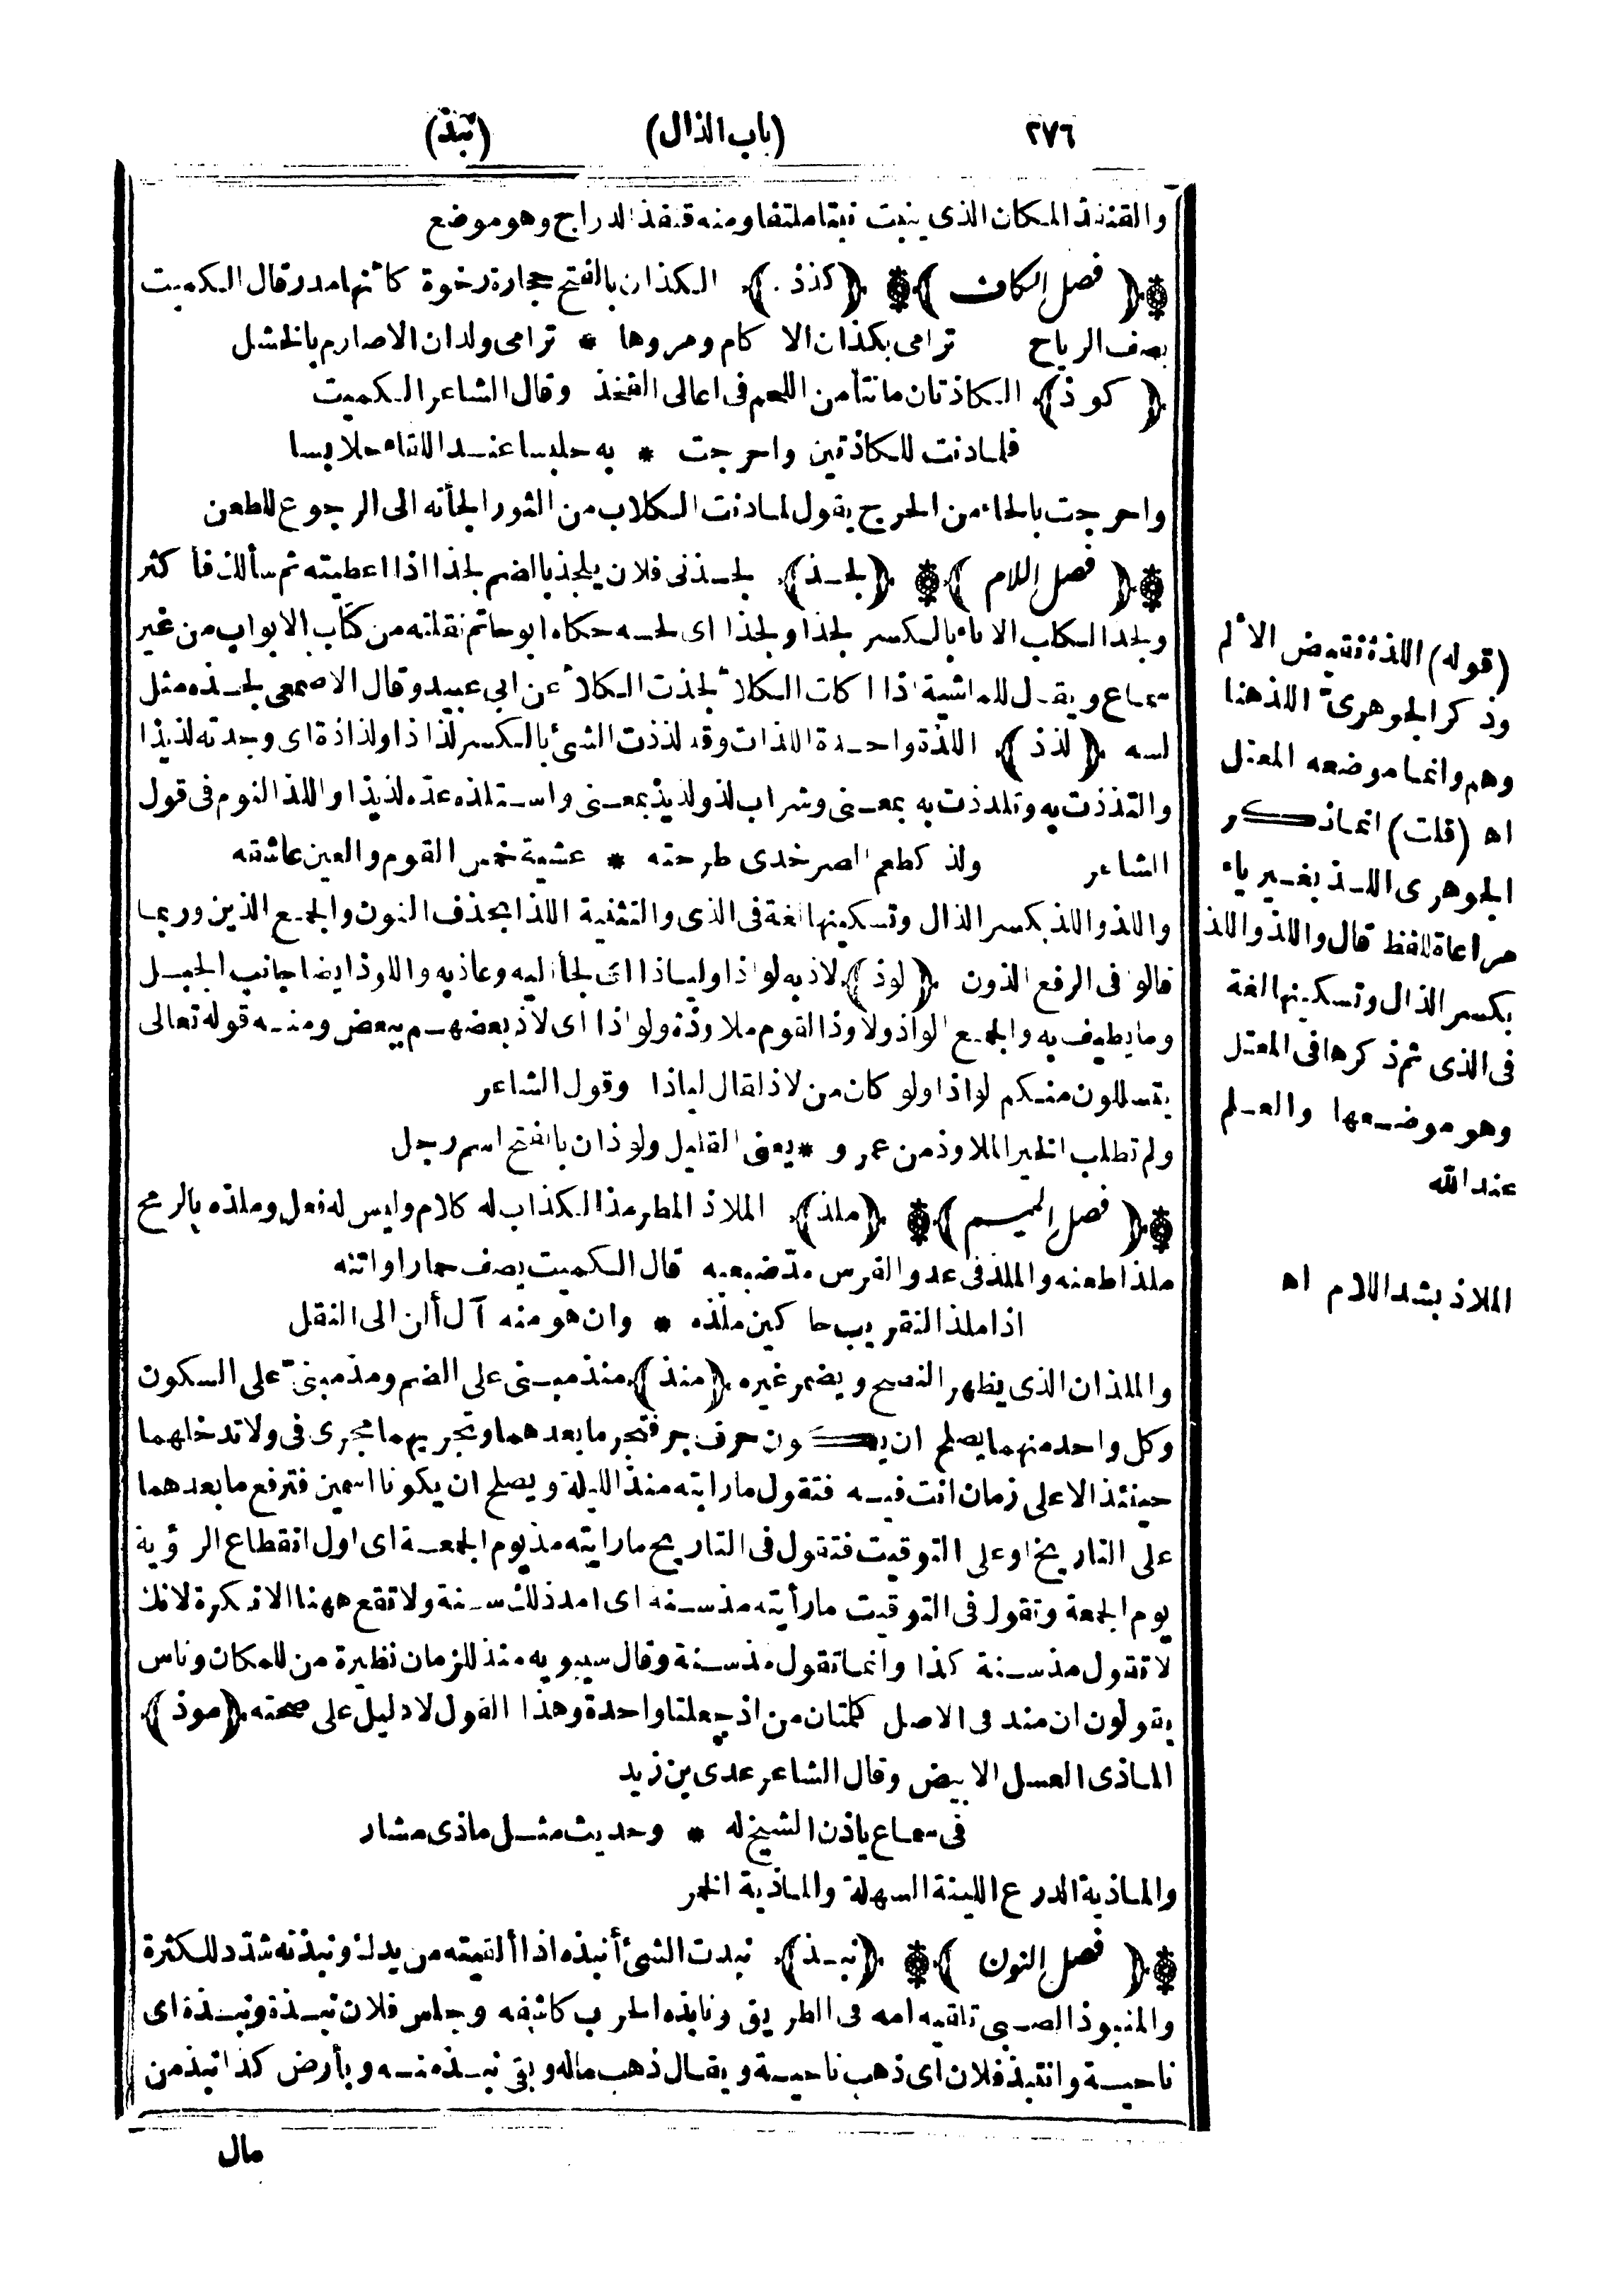 ٢٧٦ (باب الذال) (نبذ)
والقنفذ المكان الذى ينبت نبتا ملتفا ومنه قنفذ الدراج وهو موضع
﴿ فصل الكاف ﴾ ﴿كذذ﴾ الكذان بالفتح حجارة رخوة كأنها مدر قال الكميت
يصف الرياح ترامى بكذان الاكام ومروها * ترامى ولدان الاصارم بالخشل
﴿كوذ﴾ الكاذتان ما نتأ من اللحم فى اعالى الفخذ وقال الشاعر الكميت
فلما دنت للكاذتين واحرجت * به حلبسا عند اللقاء حلابسا
واحرجت بالحاء من الحرج يقول لما دنت الكلاب من الثور الجأته الى الرجوع للطعن
﴿ فصل اللام ﴾ ﴿لجذ﴾ لجذنى فلان يلجذ بالضم لجذا اذا اعطيته ثم سألك فأكثر
ولجذ الكلب الاناء بالكسر لجذا ولجذا اى لحسه حكاه ابو حاتم نقلته من كتاب الابواب من غير
سماع ويقال للماشية اذا اكلت الكلأ لجذت الكلأ عن ابى عبيد وقال الاصمعى لجذه مثل
لسه ﴿لذذ﴾ اللذة واحدة اللذات وقد لذذت الشئ بالكسر لذاذا ولذاذة اى وجدته لذيذا
والتذذت به وتلذذت به بمعنى وشراب لذ ولذيذ بمعنى واستلذه عدّه لذيذا واللذ النوم فى قول
الشاعر ولذ كطعم الصرخدى طرحته * عشية خمس القوم والعين عاشقه
واللذ واللذ بكسر الذال وتسكينها لغة فى الذى والتثنية اللذا بحذف النون والجمع الذين وربما
قالوا فى الرفع الذون ﴿لوذ﴾ لاذ به لواذا ولياذا اى لجأ اليه وعاذ به واللوذ ايضا جانب الجبل
وما يطيف به والجمع الواذ ولاوذ القوم ملاوذة ولواذا اى لاذ بعضهم ببعض ومنه قوله تعالى
يتسللون منكم لواذا ولو كان من لاذ لقال لياذا وقول الشاعر
ولم تطلب الخير الملاوذ من عمرو * يعنى القليل ولوذان بالفتح اسم رجل
﴿ فصل الميم ﴾ ﴿ملذ﴾ الملاذ المطرمذ الكذاب له كلام وليس له فعل وملذه بالرمح
ملذا طعنه والملذ فى عدو الفرس مدّ ضبعيه قال الكميت يصف حمارا واتنه
اذا ملذ التقريب حاكين ملذه * وان هو منه آل ألن الى النقل
والملذان الذى يظهر النصح ويضمر غيره ﴿منذ﴾ منذ مبنى على الضم ومذ مبنىّ على السكون
وكل واحد منهما يصلح ان يكون حرف جر فتجر ما بعدهما وتجريهما مجرى فى ولا تدخلهما
حينئذ الا على زمان انت فيه فتقول ما رايته منذ الليلة ويصلح ان يكونا اسمين فترفع ما بعدهما
على التاريخ او على التوقيت فتقول فى التاريخ ما رايته مذ يوم الجمعة اى اول انقطاع الرؤية
يوم الجمعة وتقول فى التوقيت ما رأيته مذ سنة اى امد ذلك سنة ولا تقع ههنا الا نكرة لانك
لا تقول مذ سنة كذا وانما تقول مذ سنة وقال سيبويه منذ للزمان نظيرة من للمكان وناس
يقولون ان منذ فى الاصل كلمتان من اذ جعلتا واحدة وهذا القول لا دليل على صحته ﴿موذ﴾
الماذى العسل الابيض وقال الشاعر عدى بن زيد
فى سماع ياذن الشيخ له * وحديث مثل ماذى مشار
والماذية الدرع اللينة السهلة والماذية الخمر
﴿ فصل النون ﴾ ﴿نبذ﴾ نبذت الشئ أنبذه اذا ألقيته من يدك ونبذته شدّد للكثرة
والمنبوذ الصبى تلقيه امه فى الطريق ونابذه الحرب كاشفه وجلس فلان نبذة ونبذة اى
ناحية وانتبذ فلان اى ذهب ناحية ويقال ذهب ماله وبقى نبذ منه وبأرض كذا نبذ من
مال
(قوله) اللذة نقيض الألم
وذكر الجوهرىّ اللذ هنا
وهم وانما موضعه المعتل
اه (قلت) انما ذكر
الجوهرى اللذ بغير ياء
مراعاة للفظ قال واللذ واللذ
بكسر الذال وتسكينها لغة
فى الذى ثم ذكرها فى المعتل
وهو موضعها والعلم
عند الله
الملاذ بشد اللام اه